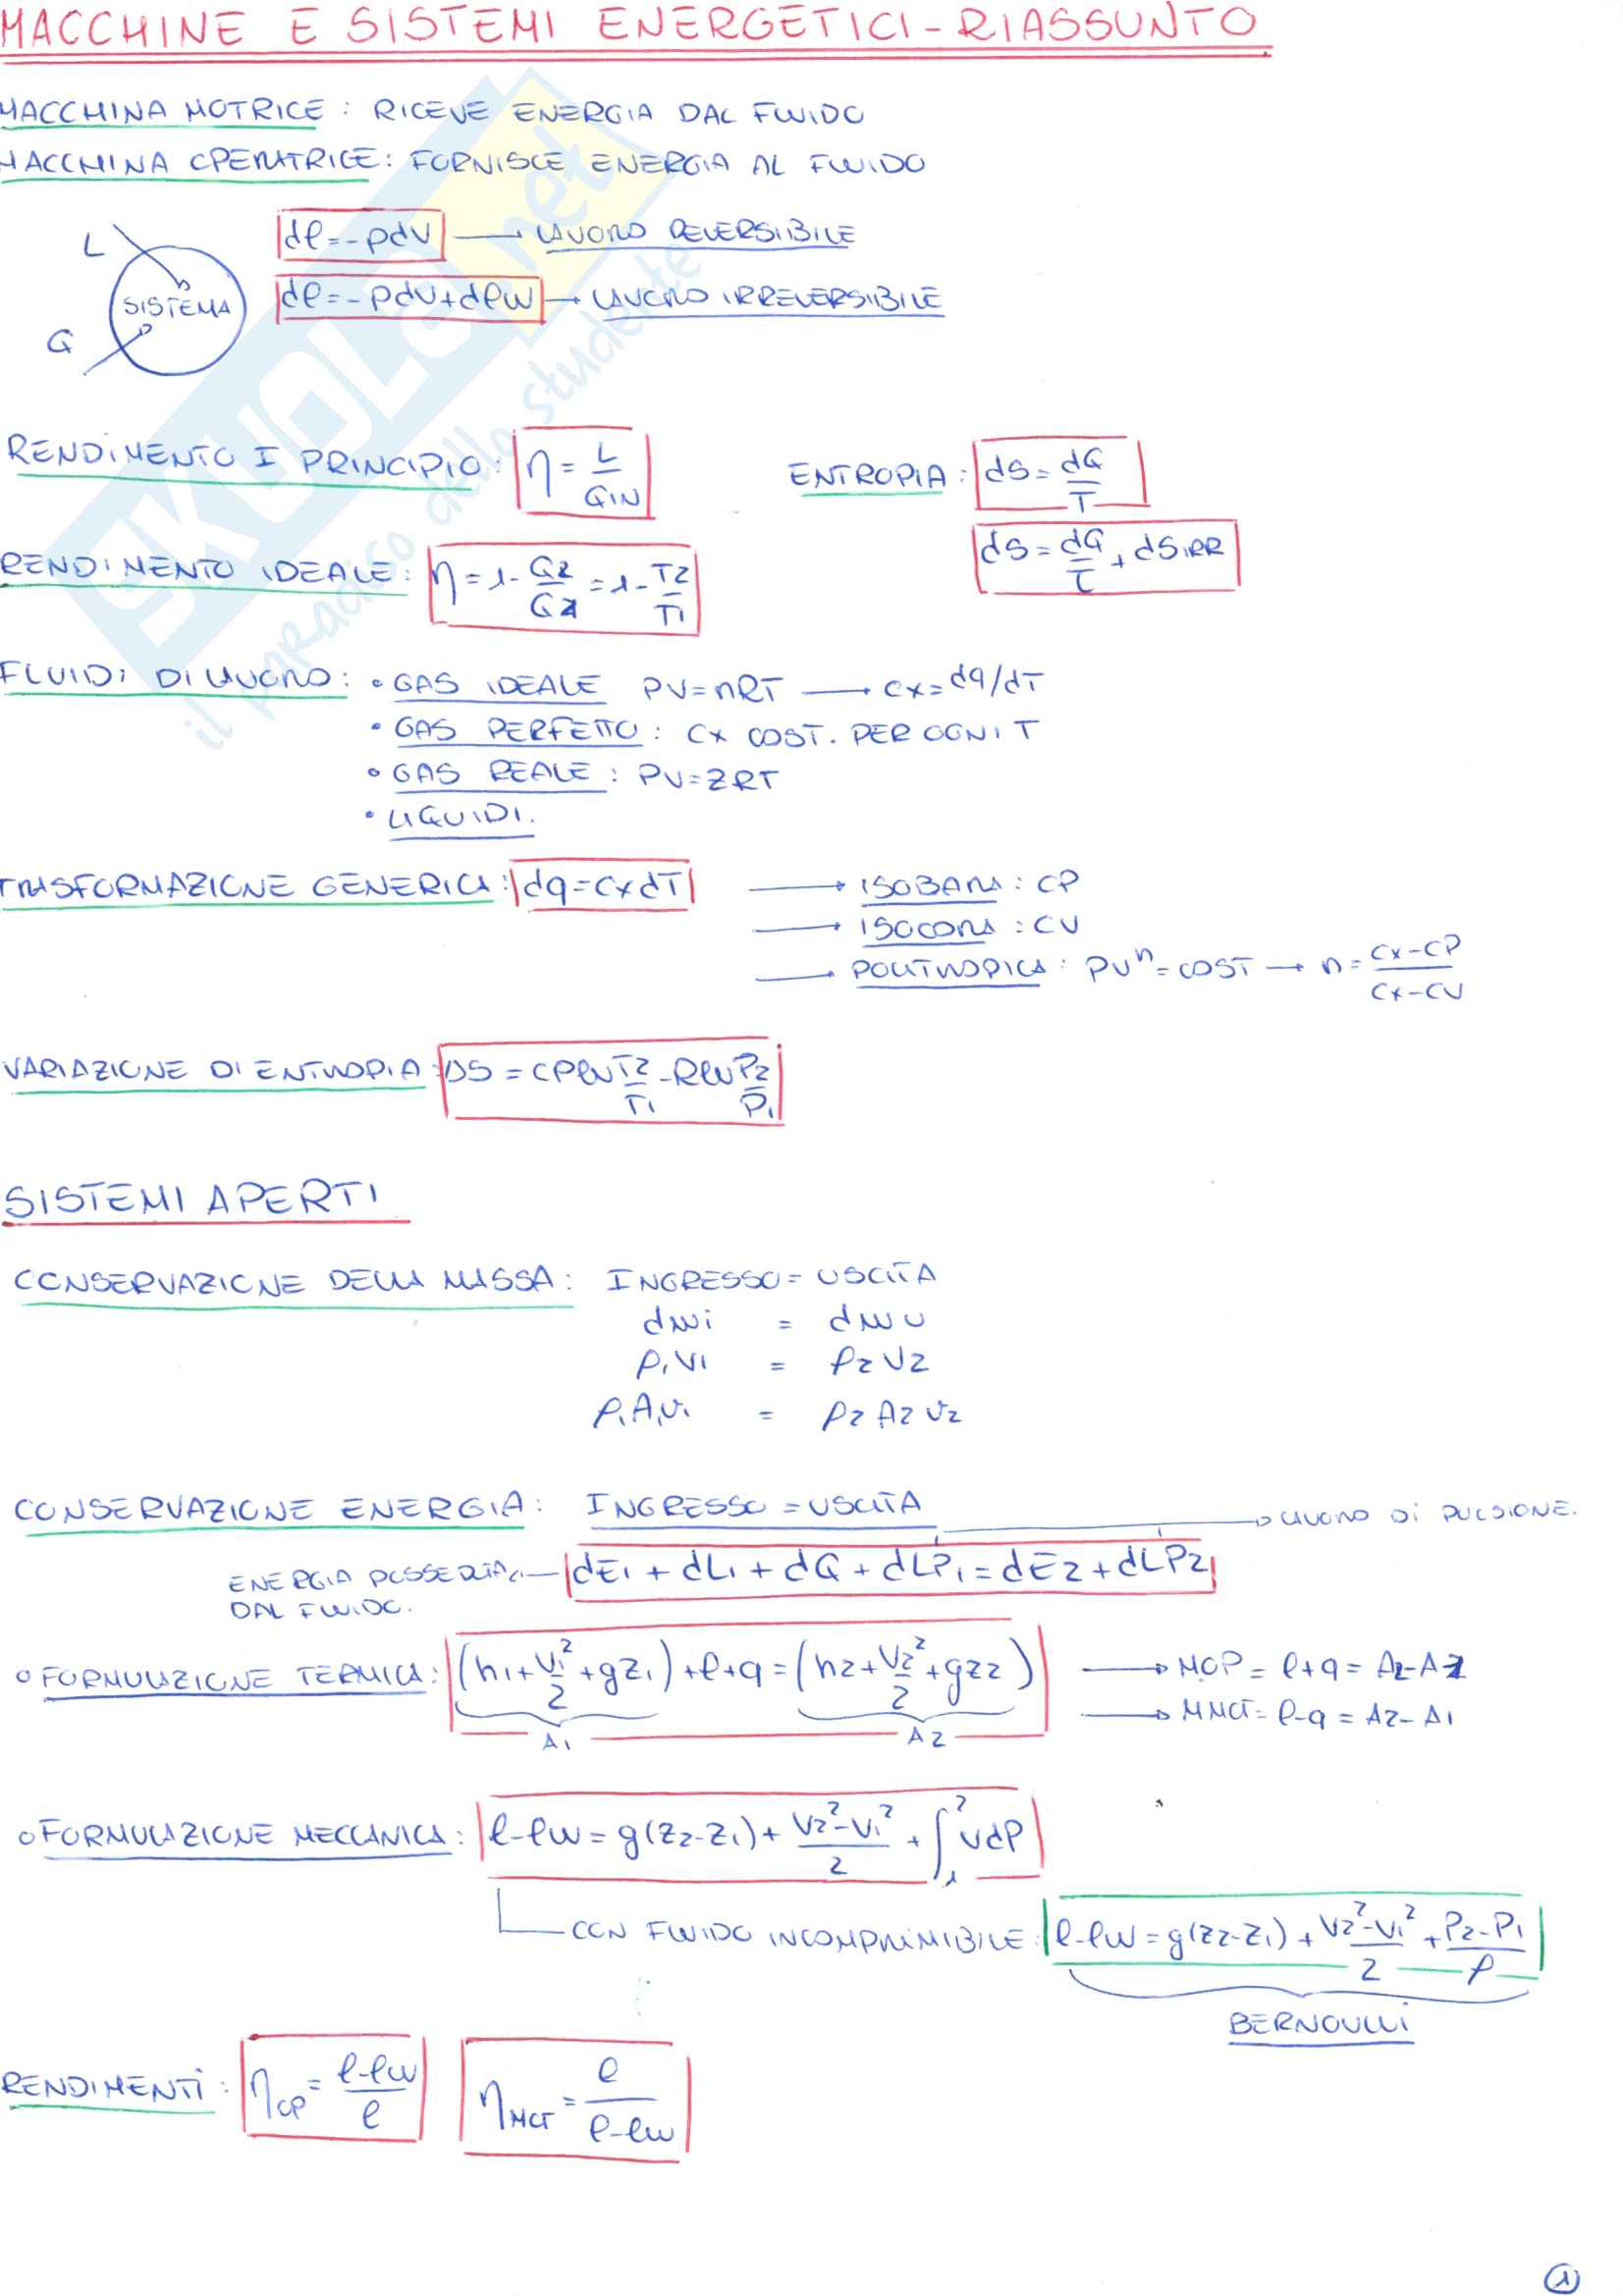 MACCHINE E SISTEMI ENERGETICI - RIASSUNTO
MACCHINA MOTRICE: RICEVE ENERGIA DAL FLUIDO
MACCHINA OPERATRICE: FORNISCE ENERGIA AL FLUIDO
L
SISTEMA
Q
dℓ = -pdv → LAVORO REVERSIBILE
dℓ = -pdv + dℓw → LAVORO IRREVERSIBILE
RENDIMENTO I PRINCIPIO: η = L/QIN
ENTROPIA: dS = dQ/T
dS = dQ/T + dSIRR
RENDIMENTO IDEALE: η = 1 - Q2/Q1 = 1 - T2/T1
FLUIDI DI LAVORO: • GAS IDEALE PV=nRT → Cx = dq/dT
• GAS PERFETTO: Cx COST. PER OGNI T
• GAS REALE: PV=ZRT
• LIQUIDI.
TRASFORMAZIONE GENERICA: dq = CxdT → ISOBARA: CP
→ ISOCORA: CV
→ POLITROPICA: PVⁿ = COST → n = (Cx-CP)/(Cx-CV)
VARIAZIONE DI ENTROPIA: DS = CP ln T2/T1 - R ln P2/P1
SISTEMI APERTI
CONSERVAZIONE DELLA MASSA: INGRESSO = USCITA
dmi = dmu
ρ1V1 = ρ2V2
ρ1A1v1 = ρ2A2v2
CONSERVAZIONE ENERGIA: INGRESSO = USCITA
→ LAVORO DI PULSIONE.
ENERGIA POSSEDUTA — dE1 + dL1 + dQ + dLP1 = dE2 + dLP2
DAL FLUIDO.
o FORMULAZIONE TERMICA: (h1 + V1²/2 + gZ1) + ℓ + q = (h2 + V2²/2 + gZ2) → MOP = ℓ+q = A2-A1
→ MMOT = ℓ-q = A2-A1
A1 A2
o FORMULAZIONE MECCANICA: ℓ-ℓw = g(Z2-Z1) + (V2²-V1²)/2 + ∫₁² vdP
CON FLUIDO INCOMPRIMIBILE: ℓ-ℓw = g(Z2-Z1) + (V2²-V1²)/2 + (P2-P1)/ρ
BERNOULLI
RENDIMENTI: ηOP = (ℓ-ℓw)/ℓ ηMOT = ℓ/(ℓ-ℓw)
1
SKUOLA.net
il paradiso dello studente